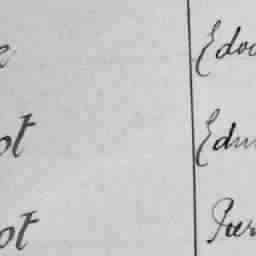 e Edou
ot Edm
ot Pier